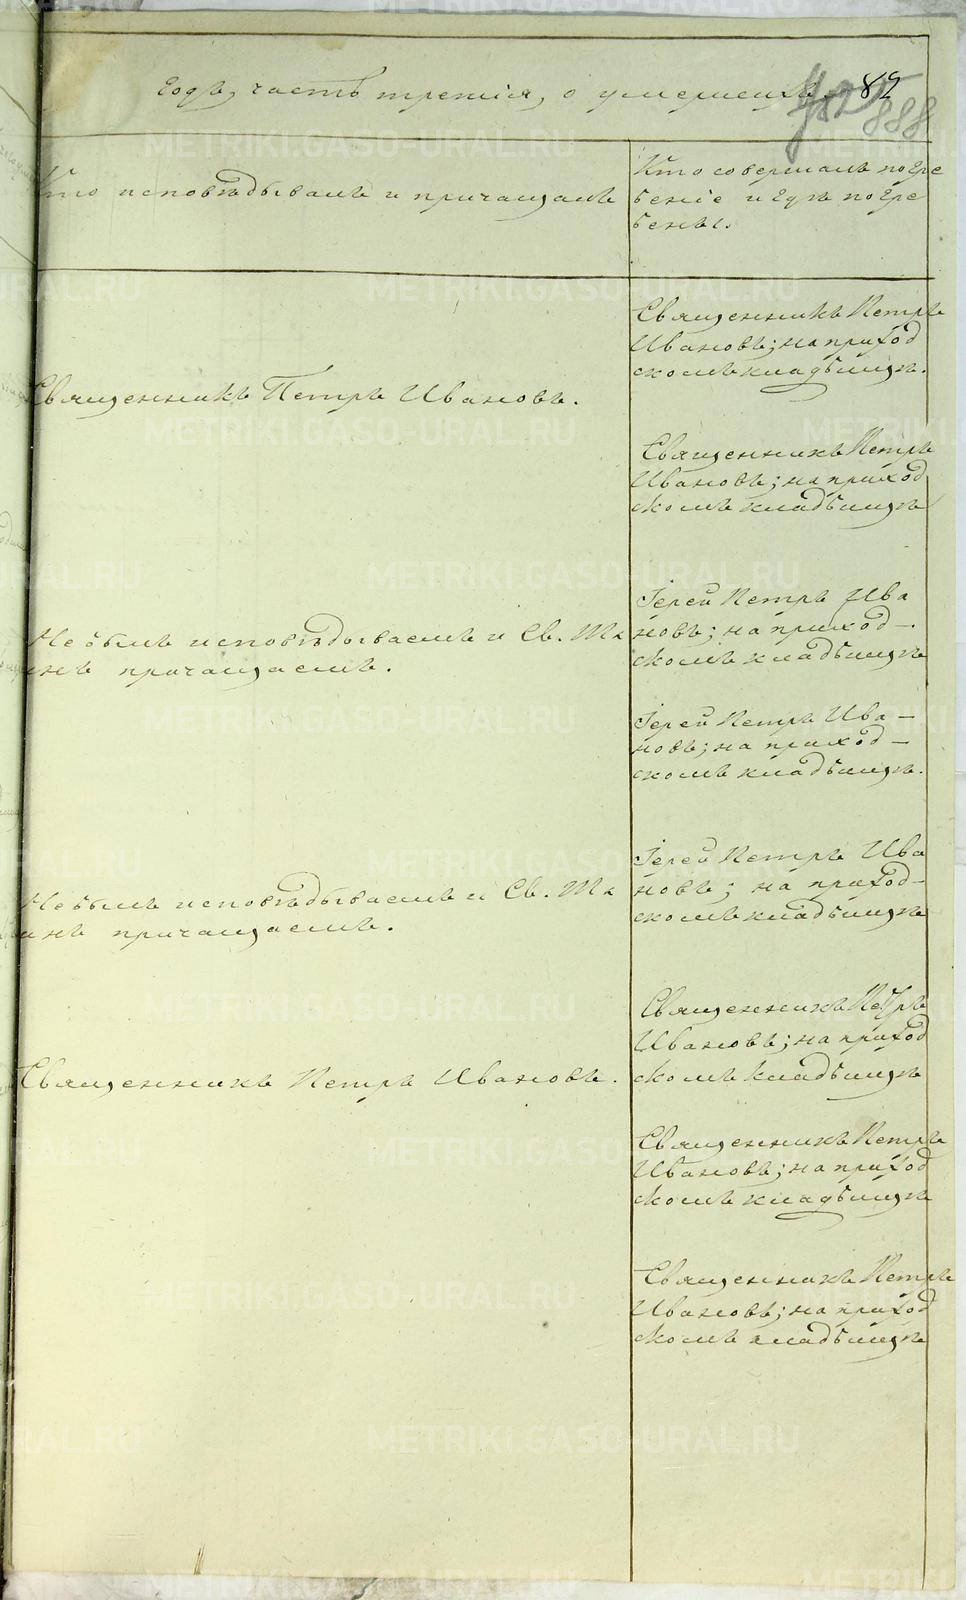 годъ, часть третія, о умершихъ.
82
888
Кто исповѣдывалъ и причащалъ
Кто совершалъ погре
беніе и гдѣ погре
бены.
Священникъ Петръ
Ивановъ; на приход
скомъ кладбищѣ.
Священникъ Петръ Ивановъ.
Священникъ Петръ
Ивановъ; на приход
скомъ кладбищѣ
Не былъ исповѣдываемъ и Св. Та
инъ причащаемъ.
Іерей Петръ Ива
новъ; на приход-
скомъ кладбищѣ
Іерей Петръ Ива-
новъ; на приход-
скомъ кладбищѣ.
Не былъ исповѣдываемъ и Св. Та
инъ причащаемъ.
Іерей Петръ Ива
новъ; на приход-
скомъ кладбищѣ
Священникъ Петръ Ивановъ.
Священникъ Петръ
Ивановъ; на приход
скомъ кладбищѣ
Священникъ Петръ
Ивановъ; на приход
скомъ кладбищѣ
Священникъ Петръ
Ивановъ; на приход
скомъ кладбищѣ
METRIKI.GASO-URAL.RU